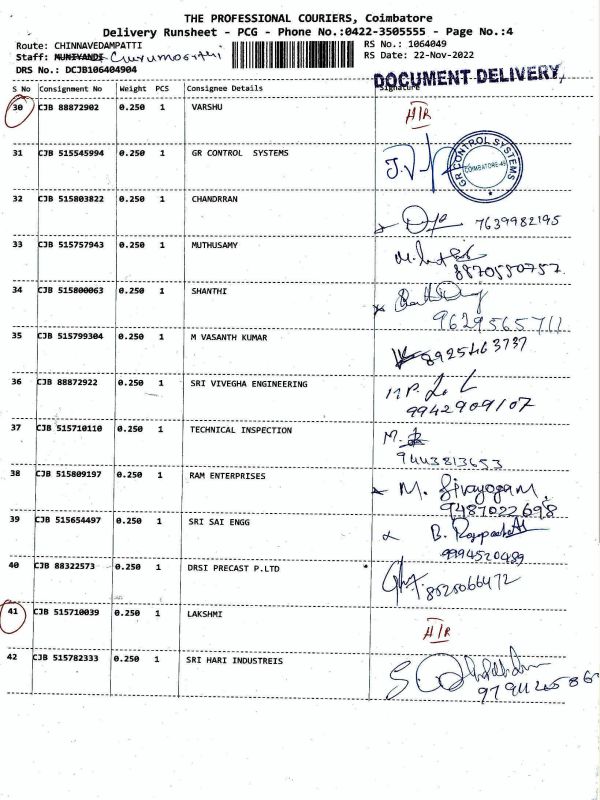 THE PROFESSIONAL COURIERS, Coimbatore
Delivery Runsheet - PCG - Phone No.:0422-3505555 - Page No.:4
Route: CHINNAVEDAMPATTI RS No.: 1064049
Staff: MUNIYANDI RS Date: 22-Nov-2022
DRS No.: DCJB106404904
DOCUMENT DELIVERY
S No Consignment No Weight PCS Consignee Details Signature
30 CJB 88872902 0.250 1 VARSHU H/R
31 CJB 515545994 0.250 1 GR CONTROL SYSTEMS
GR CONTROL SYSTEMS
32 CJB 515803822 0.250 1 CHANDRRAN
7639982195
33 CJB 515757943 0.250 1 MUTHUSAMY
8870550757
34 CJB 515800063 0.250 1 SHANTHI
9629565711
35 CJB 515799304 0.250 1 M VASANTH KUMAR
8925463737
36 CJB 88872922 0.250 1 SRI VIVEGHA ENGINEERING
9942909107
37 CJB 515710110 0.250 1 TECHNICAL INSPECTION
9443813653
38 CJB 515809197 0.250 1 RAM ENTERPRISES M. Sivayogam
9487022698
39 CJB 515654497 0.250 1 SRI SAI ENGG
9994520489
40 CJB 88322573 0.250 1 DRSI PRECAST P.LTD
8525066472
41 CJB 515710039 0.250 1 LAKSHMI H/R
42 CJB 515782333 0.250 1 SRI HARI INDUSTREIS